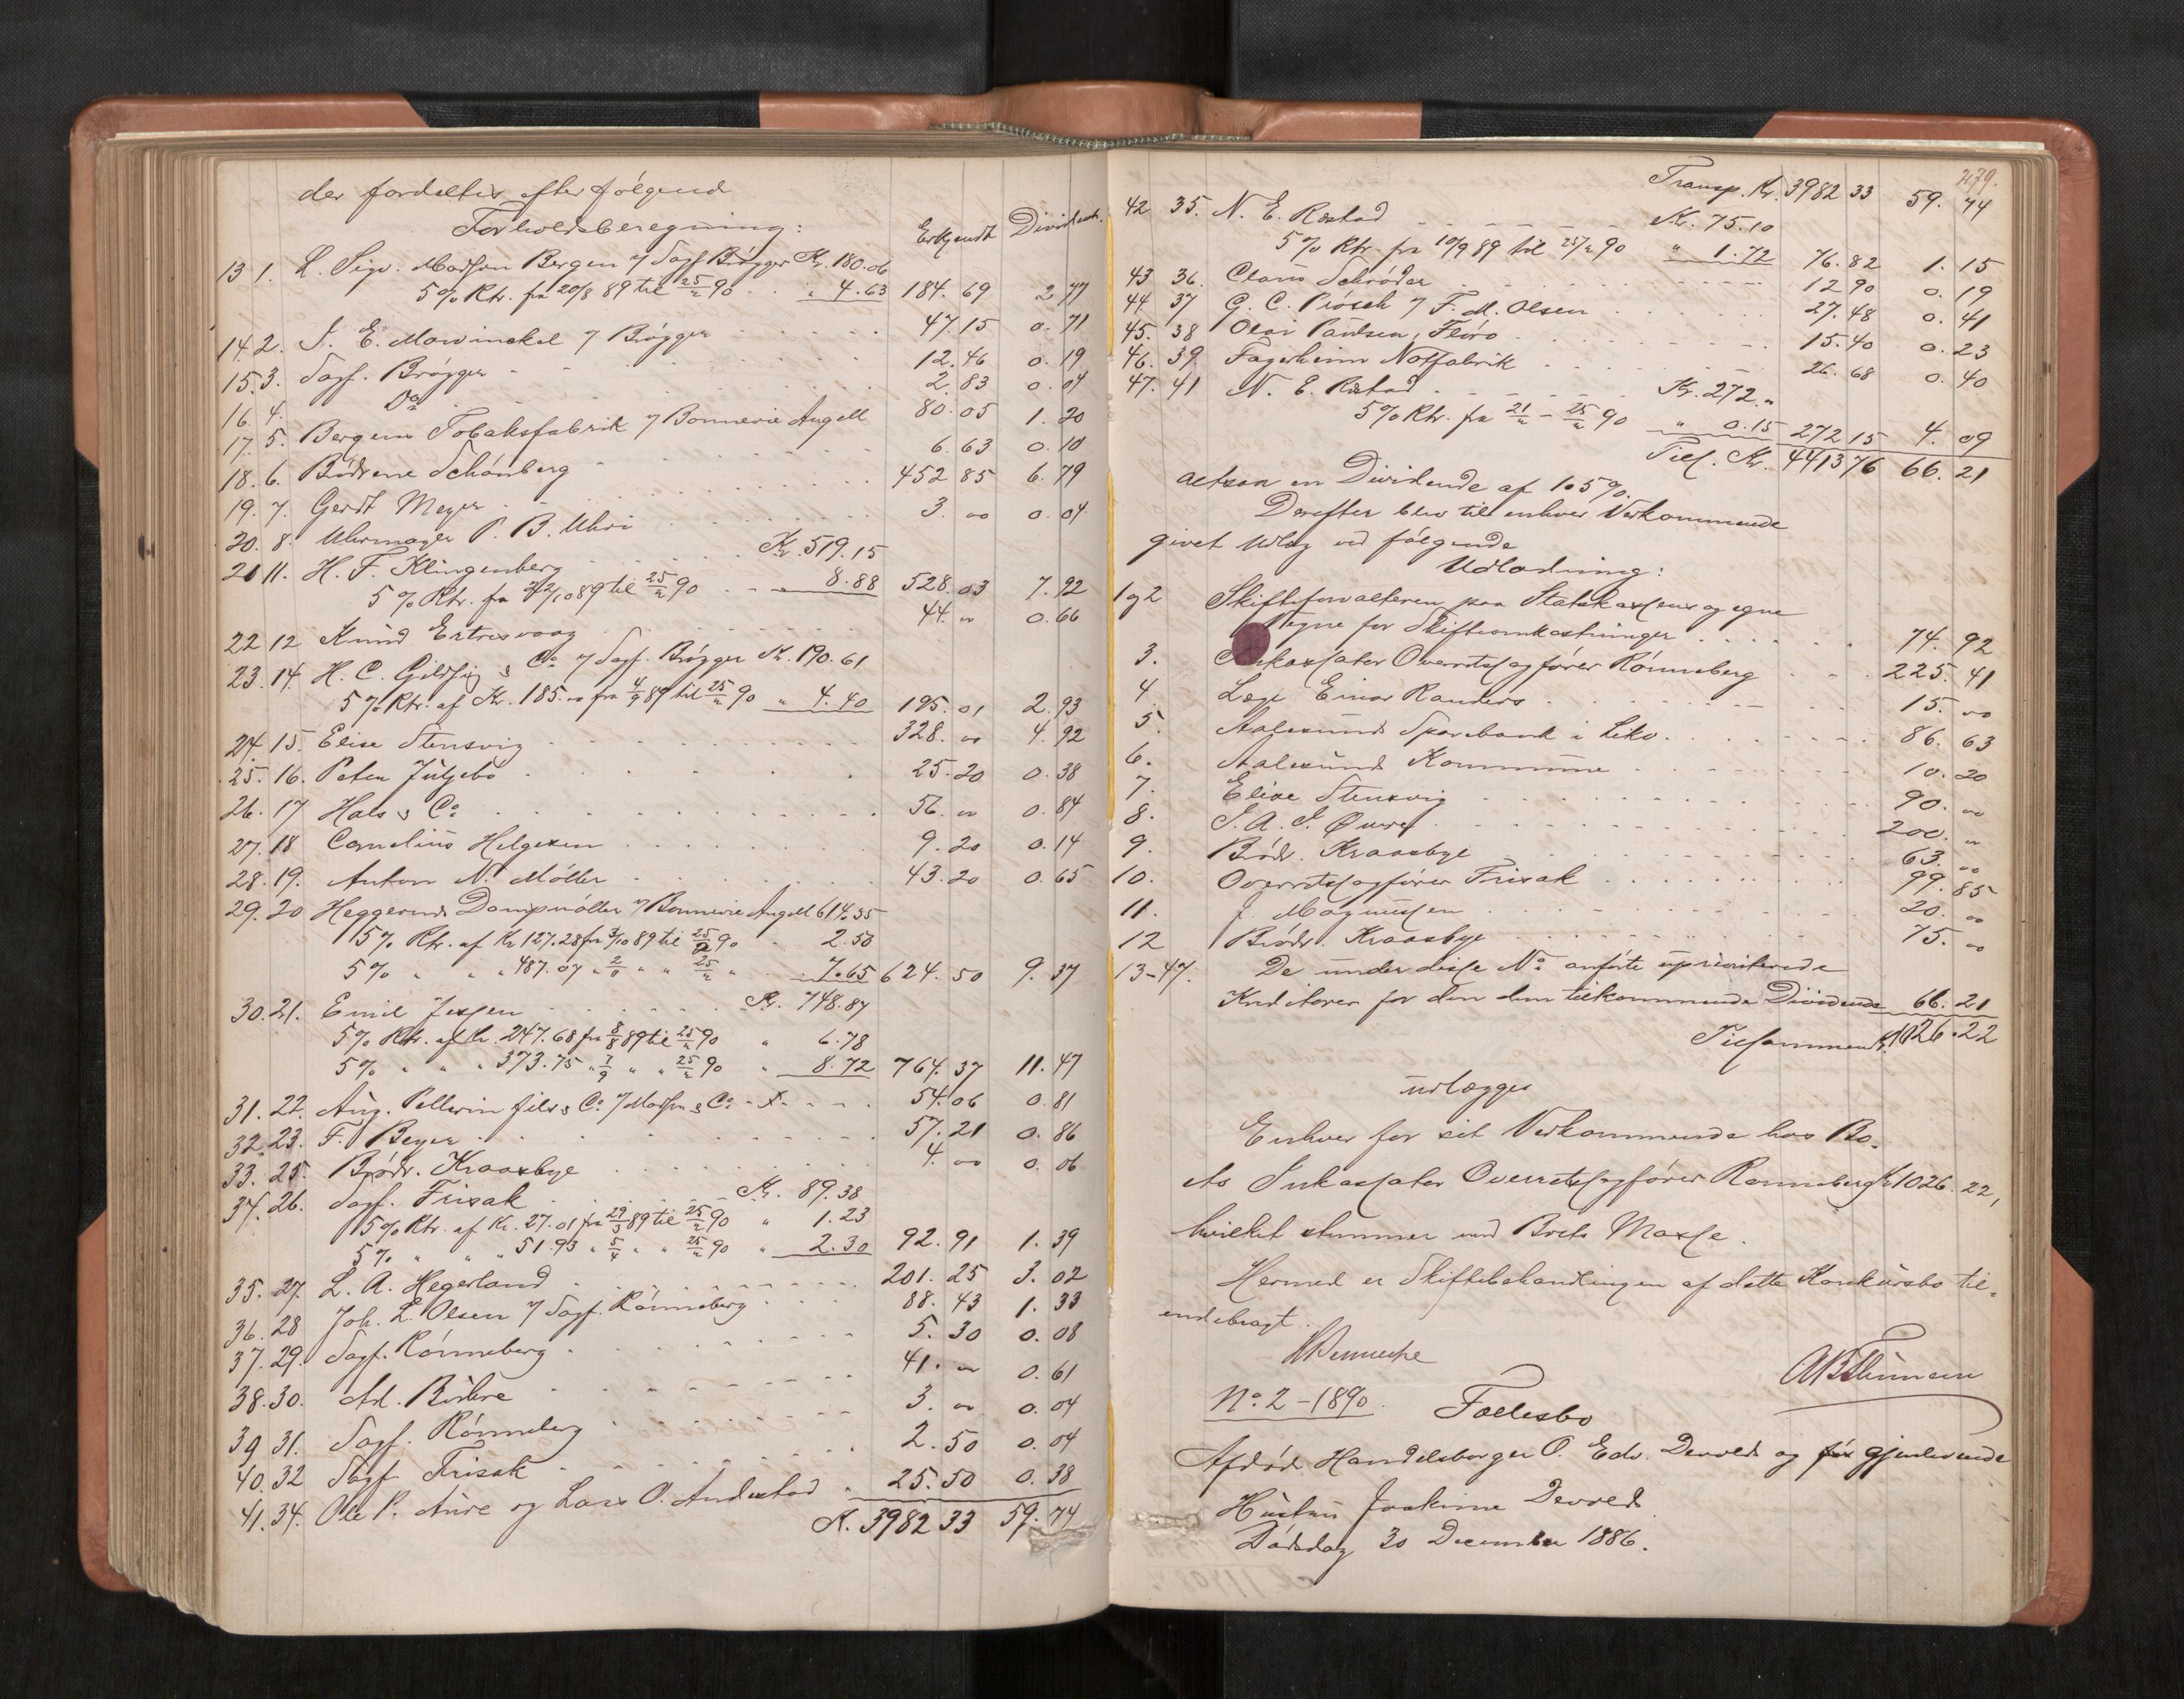 der fordeltes efter følgende
Forholdsberegning:
Erkjendt Dividende.
13 1. L. Sigv. Madsen Bergen v/ Sagf Brøgger Kr. 180.06
5 % Rtr. fra 20/8 89 til 25/2 90 " 4.63 184.69 2.77
14. 2. J. E. Mowinckel v/ Brøgger 47.15 0.71
15. 3. Sagf. Brøgger 12.46 0.19
16. 4. Do 2.83 0.04
17. 5. Bergens Tobaksfabrik v/ Bonnevie Angell 80.05 1.20
18. 6. Brødrene Schönberg 6.63 0.10
19. 7. Gerdt Meyer 452 85 6.79
20. 8. Uhrmager P. B. Uhri 3. 00 0.04
21 11. H. F. Klingenberg Kr. 519.15
5 % Rtr. fra 22/10 89 til 25/2 90 " 8.88 528.03 7.92
22 12 Knud Ertresvaag 44. " 0.66
23. 14. H. C. Gildsig & Co v/ Sagf. Brøgger Kr. 190.61
5 % Rtr. af Kr. 185.00 fra 4/9 89 til 25/2 90 " 4.40 195.01 2.93
24. 15. Elise Stensvig 328. 00 4.92
25. 16. Peter Julsebo 25.20 0.38
26. 17 Hals & Co 56. 00 0.84
27. 18 Cornelius Helgesen 9.20 0.14
28. 19. Anton N. Møller 43.20 0.65
29. 20 Heggernes Dampmøller v/ Bonnevie Angell 614.35
5 % Rtr. af Kr 127.28 fra 3/10 89 til 25/2 90 " 2.50
5 % " " " 487.07 " 2/11 " " 25/2 " 7.65 624.50 9.37
30. 21. Emil Jessen Kr. 748.87
5 % Rtr. af Kr. 247.68 fra 8/8 89 til 25/2 90 " 6.78
5 % " " " 373.75 " 7/9 " " 25/2 90 " 8.72 764.37 11.47
31. 22. Aug. Pellerin fils & Co v/ Madsen & Co 54.06 0.81
32. 23. F. Beyer 57.21 0.86
33. 25. Brødr. Kraasbye 4. 00 0.06
34. 26. Sagf. Frisak Kr. 89.38
5 % Rtr. af Kr. 27.01 fra 29/3 89 til 25/2 90 " 1.23
5 % " " " 51.93 " 5/4 " " 25/2 90 " 2.30 92.91 1.39
35. 27. L. A. Hegerland 201.25 3.02
36. 28 Joh. L. Olsen v/ Sagf. Rønneberg 88.43 1.33
37. 29. Sagf. Rønneberg 5.30 0.08
38. 30. Ad. 41. " 0.61
39 31. Sagf. Rønneberg 3. 00 0.04
40. 32 Sagf Frisak 2.50 0.04
41. 34. Ole P. Aure og Lars O. Andestad " 25.50 0.38
Kr. 3982 33 59.74
279.
Transp. Kr. 3982 33 59.74
42 35. N. E. Røstad Kr. 75.10
5 % Rtr. fra 10/9 89 til 25/2 90 " 1.72 76.82 1.15
43 36. Claus Schrøder 12 90 0.19
44. 37 G. C. Piøsch v/ F. M. Olsen 27.48 0.41
45. 38 Olai Paulsen, Florø 15.40 0.23
46. 39. Fagerheims Notfabrik 26.68 0.40
47. 41 N. E. Røstad Kr. 272. "
5 % Rtr. fra 21/2 - 25/2 90 " 0.15 272 15 4.09
Tils. Kr. 4413 76 66.21
altsaa en Dividende af 1.5 %.
Derefter blev til enhver Vedkommende
givet Udlæg ved følgende
Udlodning:
1 og 2 Skifteforvalteren paa Statskassens og egne
Vegne for Skifteomkostninger 74.92
3. Inkassator Overretssagfører Rønneberg 225.41
4. Læge Einar Randers 15. 00
5. Aalesunds Sparebank i Likv. 86.63
6. Aalesunds Kommune 10.20
7. Elise Stensvig 90. 00
8. 200. "
9. Brødr. Kraasbye 63. 00
10. Overretssagfører Frisak 99.85
11. J. Magnussen 20. 00
12 Brødr. Kraasbye 75. 00
13-47. De under disse No anførte uprioriterede
Kreditorer for den dem tilkommende Dividende 66.21
Tilsammen Kr. 1026.22
udlægges
Enhver for sit Vedkommende hos Bo-
ets Inkassator Overretssagfører Rønneberg Kr 1026.22,
hvilket stemmer med Boets Masse.
Hermed er Skiftebehandlingen af dette Konkursbo til-
endebragt.
No. 2 - 1890. Fællesbo
Afdød Handelsborger O. Edv. Devold og før gjenlevende
Hustru Joakime Devold
Dødsdag 30 December 1886.